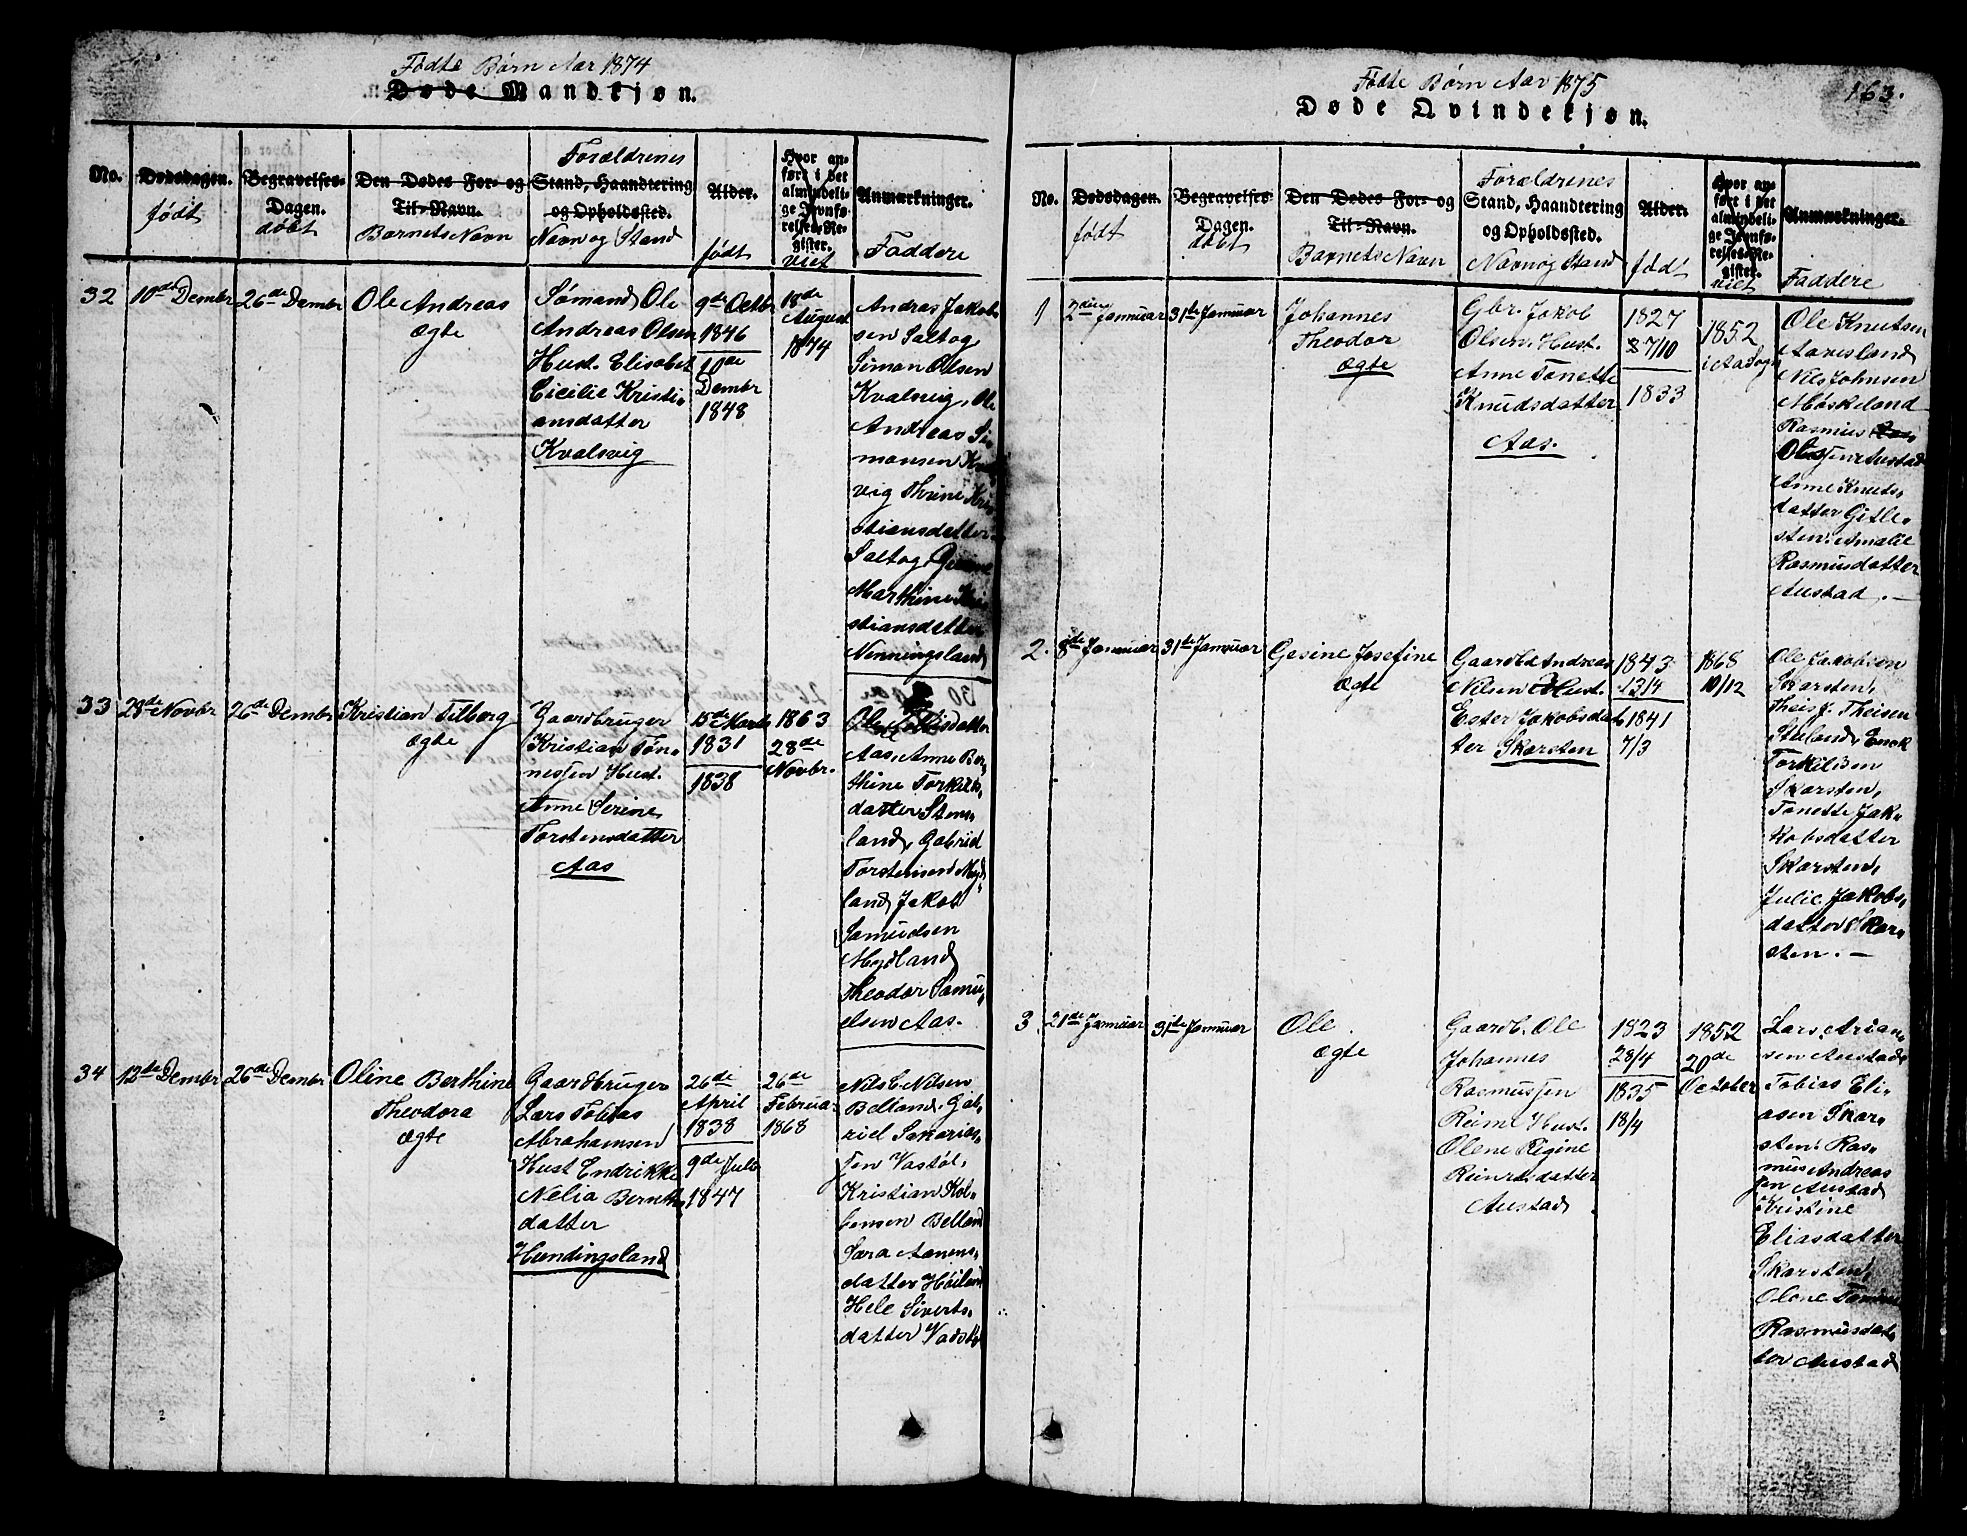 Fødte Børn Aar 1874
Døde Mandkjøn.
No.
Dødsdagen.
født
Begravelses-
Dagen.
døbt
Den Dødes For- og
Til-Navn.
Barnets Navn
Forældrenes
Stand, Haandtering
og Opholdssted.
Navn og Stand
Alder.
født
Hvor an-
ført i det
almindeli-
ge Jevnfø-
relses-Re-
gister.
viet
Anmærkninger.
Faddere
32
10de Dembr
26de Dembr
Ole Andreas
Ægte
Sømand Ole
Andreas Olsen
Hust. Elisabet
Cicilie Kristi-
ansdatter
Kvalsvig
9de Octbr
1846
10de
Dembr
1848
18de
August
1874
Andreas Jakob-
sen Saltog
Siman Olsen
Kvalsvig, Ole
Andreas Si-
monsen
vig Thrine Kri-
stiansdatter
Saltog
Marthine Kri-
stiansdatter
Nenningsland
33
28de Novbr
26de Dembr
Kristian Tilborg
Ægte
Gaardbruger
Kristian Tøn-
nessen Hust.
Anne Serine
Torstensdatter
Aas
15de Marts
1831
1838
1863
28de
Novbr.
Aas, Anne Ber-
thine Torkils-
datter Stens-
land, Gabriel
Torstensen Myd-
land, Jakob
Samuelsen
Mydland
Theodor Samu-
elsen Aas.
34
12de Dembr
26de Dembr
Oline Berthine
Theodora
Ægte
Gaardbruger
Lars Tobias
Abrahamsen
Hust Endrikke
Nelia Bernths
datter
Hundingsland
26de
April
1838
9de Juli
1847
26de
Februar
1868
Nils E. Nilsen
Belland, Gab-
riel Sakarias-
sen Vastøl,
Kristian Kol-
bensen Belland
Sara Aanens-
datter Høiland
Hele Siverts-
datter Vadstøl
Fødte Børn Aar 1875
Døde Qvindekjøn.
163.
No.
Dødsdagen.
født
Begravelses-
Dagen.
døbt
Den Dødes For- og
Til-Navn.
Barnets Navn
Forældrenes
Stand, Haandtering
og Opholdssted.
Navn og Stand
Alder.
født
Hvor an-
ført i det
almindeli-
ge Jevnfø-
relses-Re-
gister.
viet
Anmærkninger.
Faddere
1
2den Januar
31te Januar
Johannes
Theodor
Ægte
Gbr. Jakob
Olsen. Hust.
Anne Tonette
Knudsdatter
Aas.
1827
7/10
1833
1852
Ole Knutsen
Aanesland
Nils Johnsen
Møskeland
Rasmus
Olsen Austad
Anne Knuts-
datter Gitle-
sten. Amalie
Rasmusdatter
Austad. —
2.
8de Januar
31te Januar
Gesine Josefine
Ægte
Gaardb. Andreas
Nilsen Hust.
Ester Jakobsdat-
ter Skarsten
1843
13/4
1841
7/3
1868
10/12
Ole Jakobsen
Skarsten,
Theis J. Theisen
Stuland, Enok
Torkilsen
Skarsten,
Tonette Jak-
kobsdatter
Skarsten,
Julie Jakobs-
datter Skar-
sten. —
3
21de Januar
31te Januar
Ole.
Ægte
Gaardb. Ole
Johannes
Rasmussen
Reime Hust.
Olene Regine
Reinertsdatter
Austad
1823
28/4
1835
18/4
1852
20de
October
Lars Arian-
sen Austad
Tobias Eli-
asen Skar-
sten. Ras-
mus Andreas
sen Austad
Kristine
Eliasdatter
Skarsten,
Olene
Rasmusdat-
ter Austad